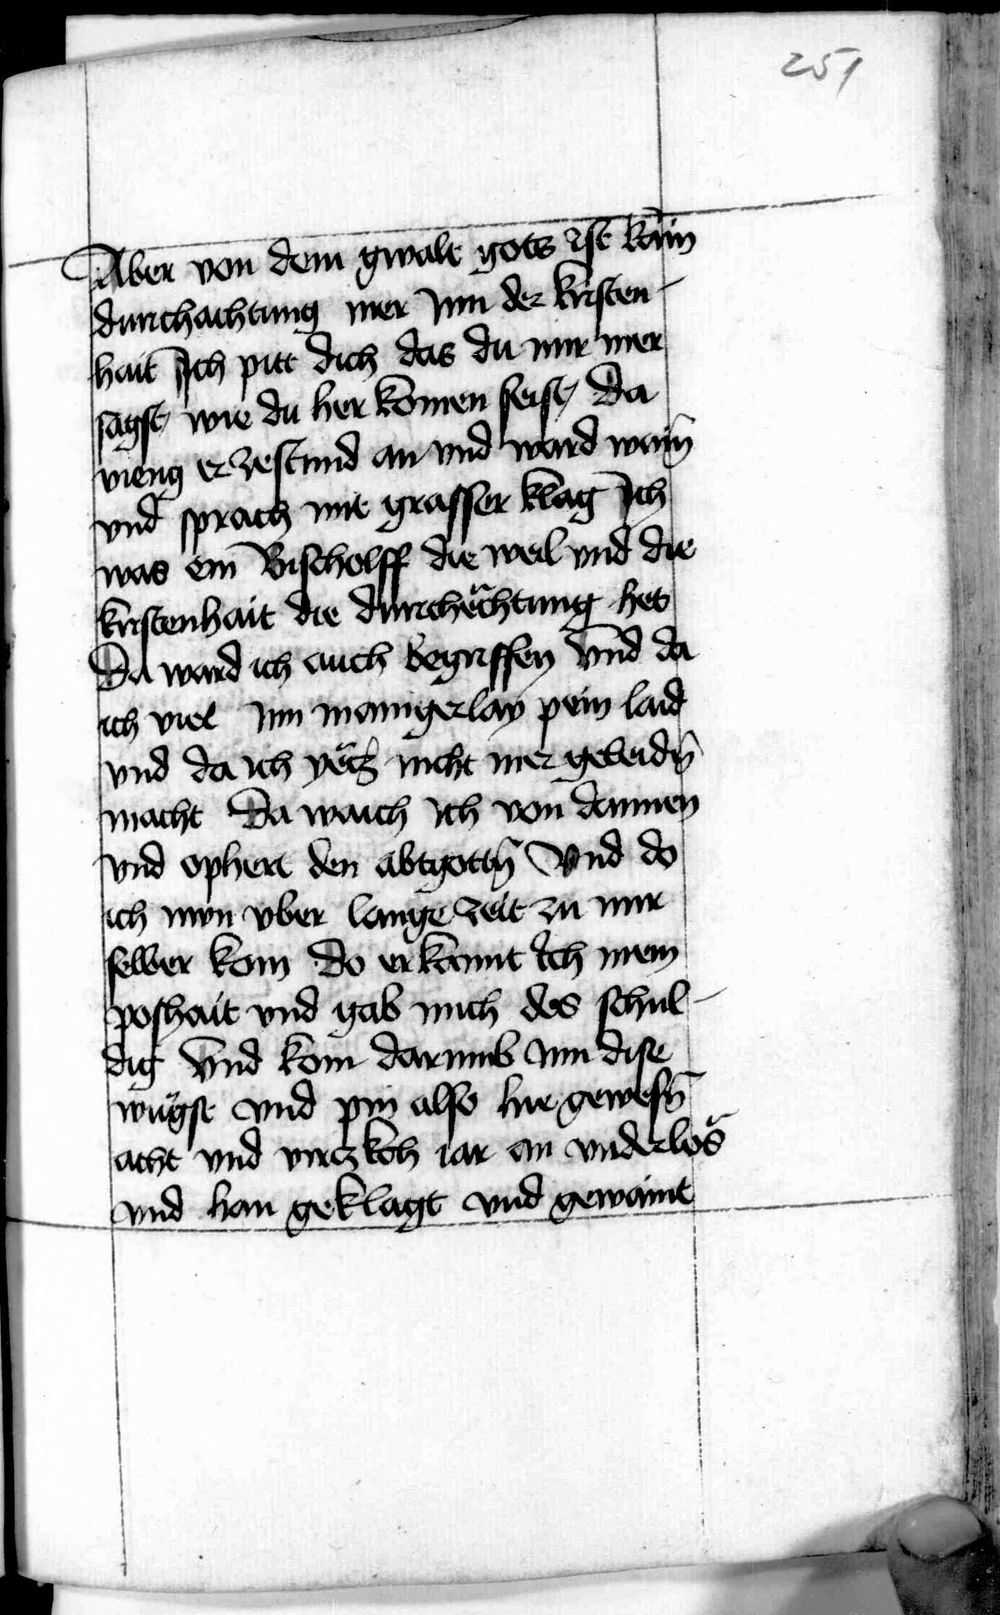 251
Aber von dem gwalt gots ist kain
durchachtung mer Inn der kristen-
hait Ich pitt dich das du mir mer
sagst wie du her komen seist Da
vieng er zestund an vnd ward wain̄
vnd sprach mit grasser klag Ich
was ein Bischolff die weil vnd die
kristenhait die durchächtung het
Da ward ich auch begriffen Vnd da
ich viel Inn manigerlay pein laid
vnd da ich yetz nicht mer geleidn̄
macht Da waich Ich von dannen
vnd ophert den abtgottn̄ Vnd do
ich nun vber lange zeit zu mir
selber kom Do erkannt Ich mein
poshait vnd gab mich des schul-
dig Vnd kom darumb Inn dise
wůgst vnd pin also hie gewesn̄
acht vnd virczkch iar an vnderlos
vnd han geklagt vnd gewaint